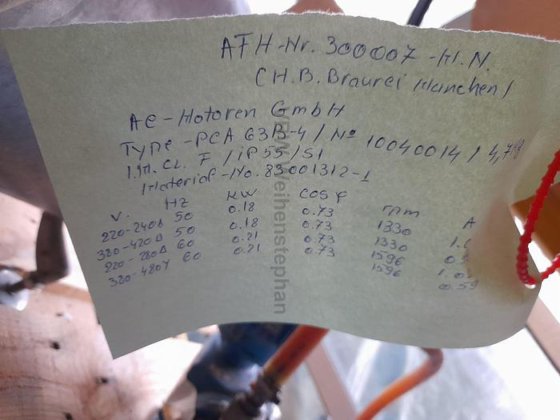 ATH-Nr. 300007-H.N.
(H.B. Braurei Munchen)
AC-Motoren GmbH
Type-PCA 63B-4 / Nº 10040014 / 4,7
I.M. CL. F / IP 55 / S1
Material-No. 83001312-1
V. Hz KW cos φ rpm A
220-240Δ 50 0.18 0.73 1330
320-420 50 0.18 0.73 1330
220-280Δ 60 0.21 0.73 1596
320-480Y 60 0.21 0.73 1596 0.59
Weihenstephan